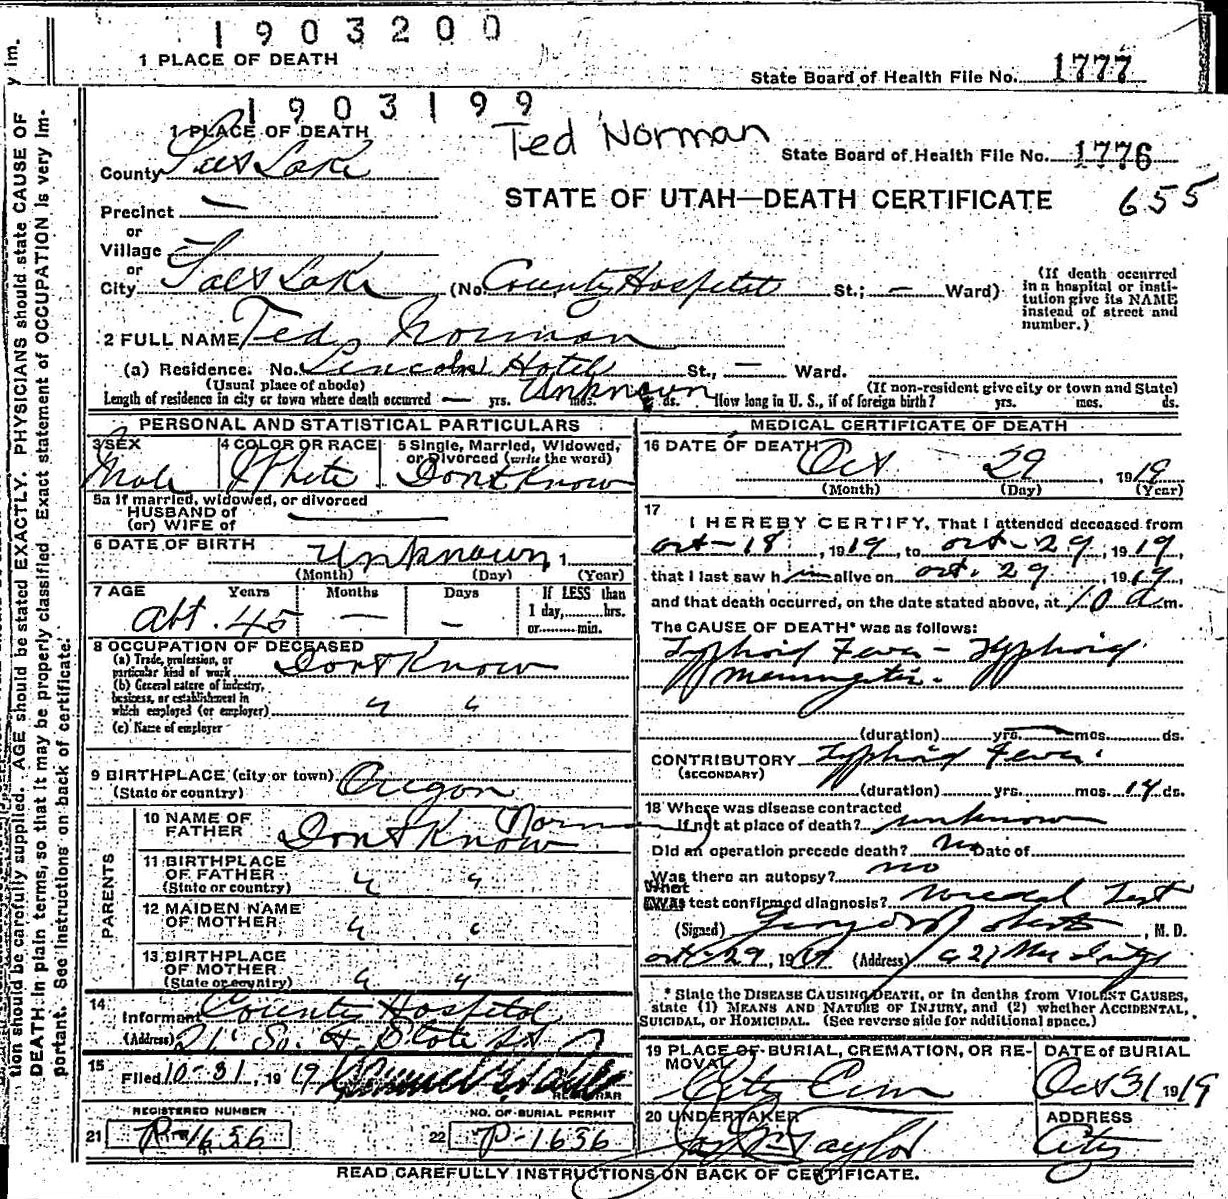 1903200
1 PLACE OF DEATH
State Board of Health File No. 1777
1903199
1 PLACE OF DEATH
Ted Norman
State Board of Health File No. 1776
County Salt Lake
STATE OF UTAH—DEATH CERTIFICATE 655
Precinct —
or
Village
or
City Salt Lake (No. County Hospital St.; — Ward)
(If death occurred in a hospital or institution give its NAME instead of street and number.)
2 FULL NAME Ted Norman
(a) Residence. No. Lincoln Hotel St., — Ward.
(Usual place of abode) (If non-resident give city or town and State)
Length of residence in city or town where death occurred — yrs. Unknown mos. ds. How long in U. S., if of foreign birth? yrs. mos. ds.
PERSONAL AND STATISTICAL PARTICULARS
3 SEX Male
4 COLOR OR RACE White
5 Single, Married, Widowed, or Divorced (write the word) Dont Know
5a If married, widowed, or divorced
HUSBAND of
(or) WIFE of —
6 DATE OF BIRTH Unknown, 1
(Month) (Day) (Year)
7 AGE Years Months Days If LESS than
abt. 45 — — 1 day, hrs.
or min.
8 OCCUPATION OF DECEASED
(a) Trade, profession, or particular kind of work Dont Know
(b) General nature of industry, business, or establishment in which employed (or employer) " "
(c) Name of employer
9 BIRTHPLACE (city or town)
(State or country) Oregon
PARENTS
10 NAME OF FATHER Dont Know Norman
11 BIRTHPLACE OF FATHER (State or country) " "
12 MAIDEN NAME OF MOTHER " "
13 BIRTHPLACE OF MOTHER (State or country) " "
14 Informant County Hospital
(Address) 21 So. & State St
15 Filed 10-31, 1919
REGISTRAR
REGISTERED NUMBER
21 R-1656
NO. OF BURIAL PERMIT
22 P-1636
MEDICAL CERTIFICATE OF DEATH
16 DATE OF DEATH Oct 29, 1919
(Month) (Day) (Year)
17 I HEREBY CERTIFY, That I attended deceased from
oct-18, 1919, to oct-29, 1919,
that I last saw h im alive on oct. 29, 1919,
and that death occurred, on the date stated above, at 10 a m.
The CAUSE OF DEATH* was as follows:
Typhoid Fever - Typhoid
Meningitis.
(duration) yrs. mos. ds.
CONTRIBUTORY Typhoid Fever.
(SECONDARY)
(duration) yrs. mos. 14 ds.
18 Where was disease contracted
If not at place of death? unknown
Did an operation precede death? No Date of
Was there an autopsy? no
What test confirmed diagnosis? Widal Test
(Signed) George Roberts, M. D.
oct-29, 1919 (Address)
* State the DISEASE CAUSING DEATH, or in deaths from VIOLENT CAUSES, state (1) MEANS AND NATURE OF INJURY, and (2) whether ACCIDENTAL, SUICIDAL, or HOMICIDAL. (See reverse side for additional space.)
19 PLACE OF BURIAL, CREMATION, OR REMOVAL City Cem
DATE of BURIAL Oct 31 1919
20 UNDERTAKER Taylor
ADDRESS City
READ CAREFULLY INSTRUCTIONS ON BACK OF CERTIFICATE.
y im.
tion should be carefully supplied. AGE should be stated EXACTLY. PHYSICIANS should state CAUSE OF
DEATH in plain terms, so that it may be properly classified. Exact statement of OCCUPATION is very im-
portant. See instructions on back of certificate.